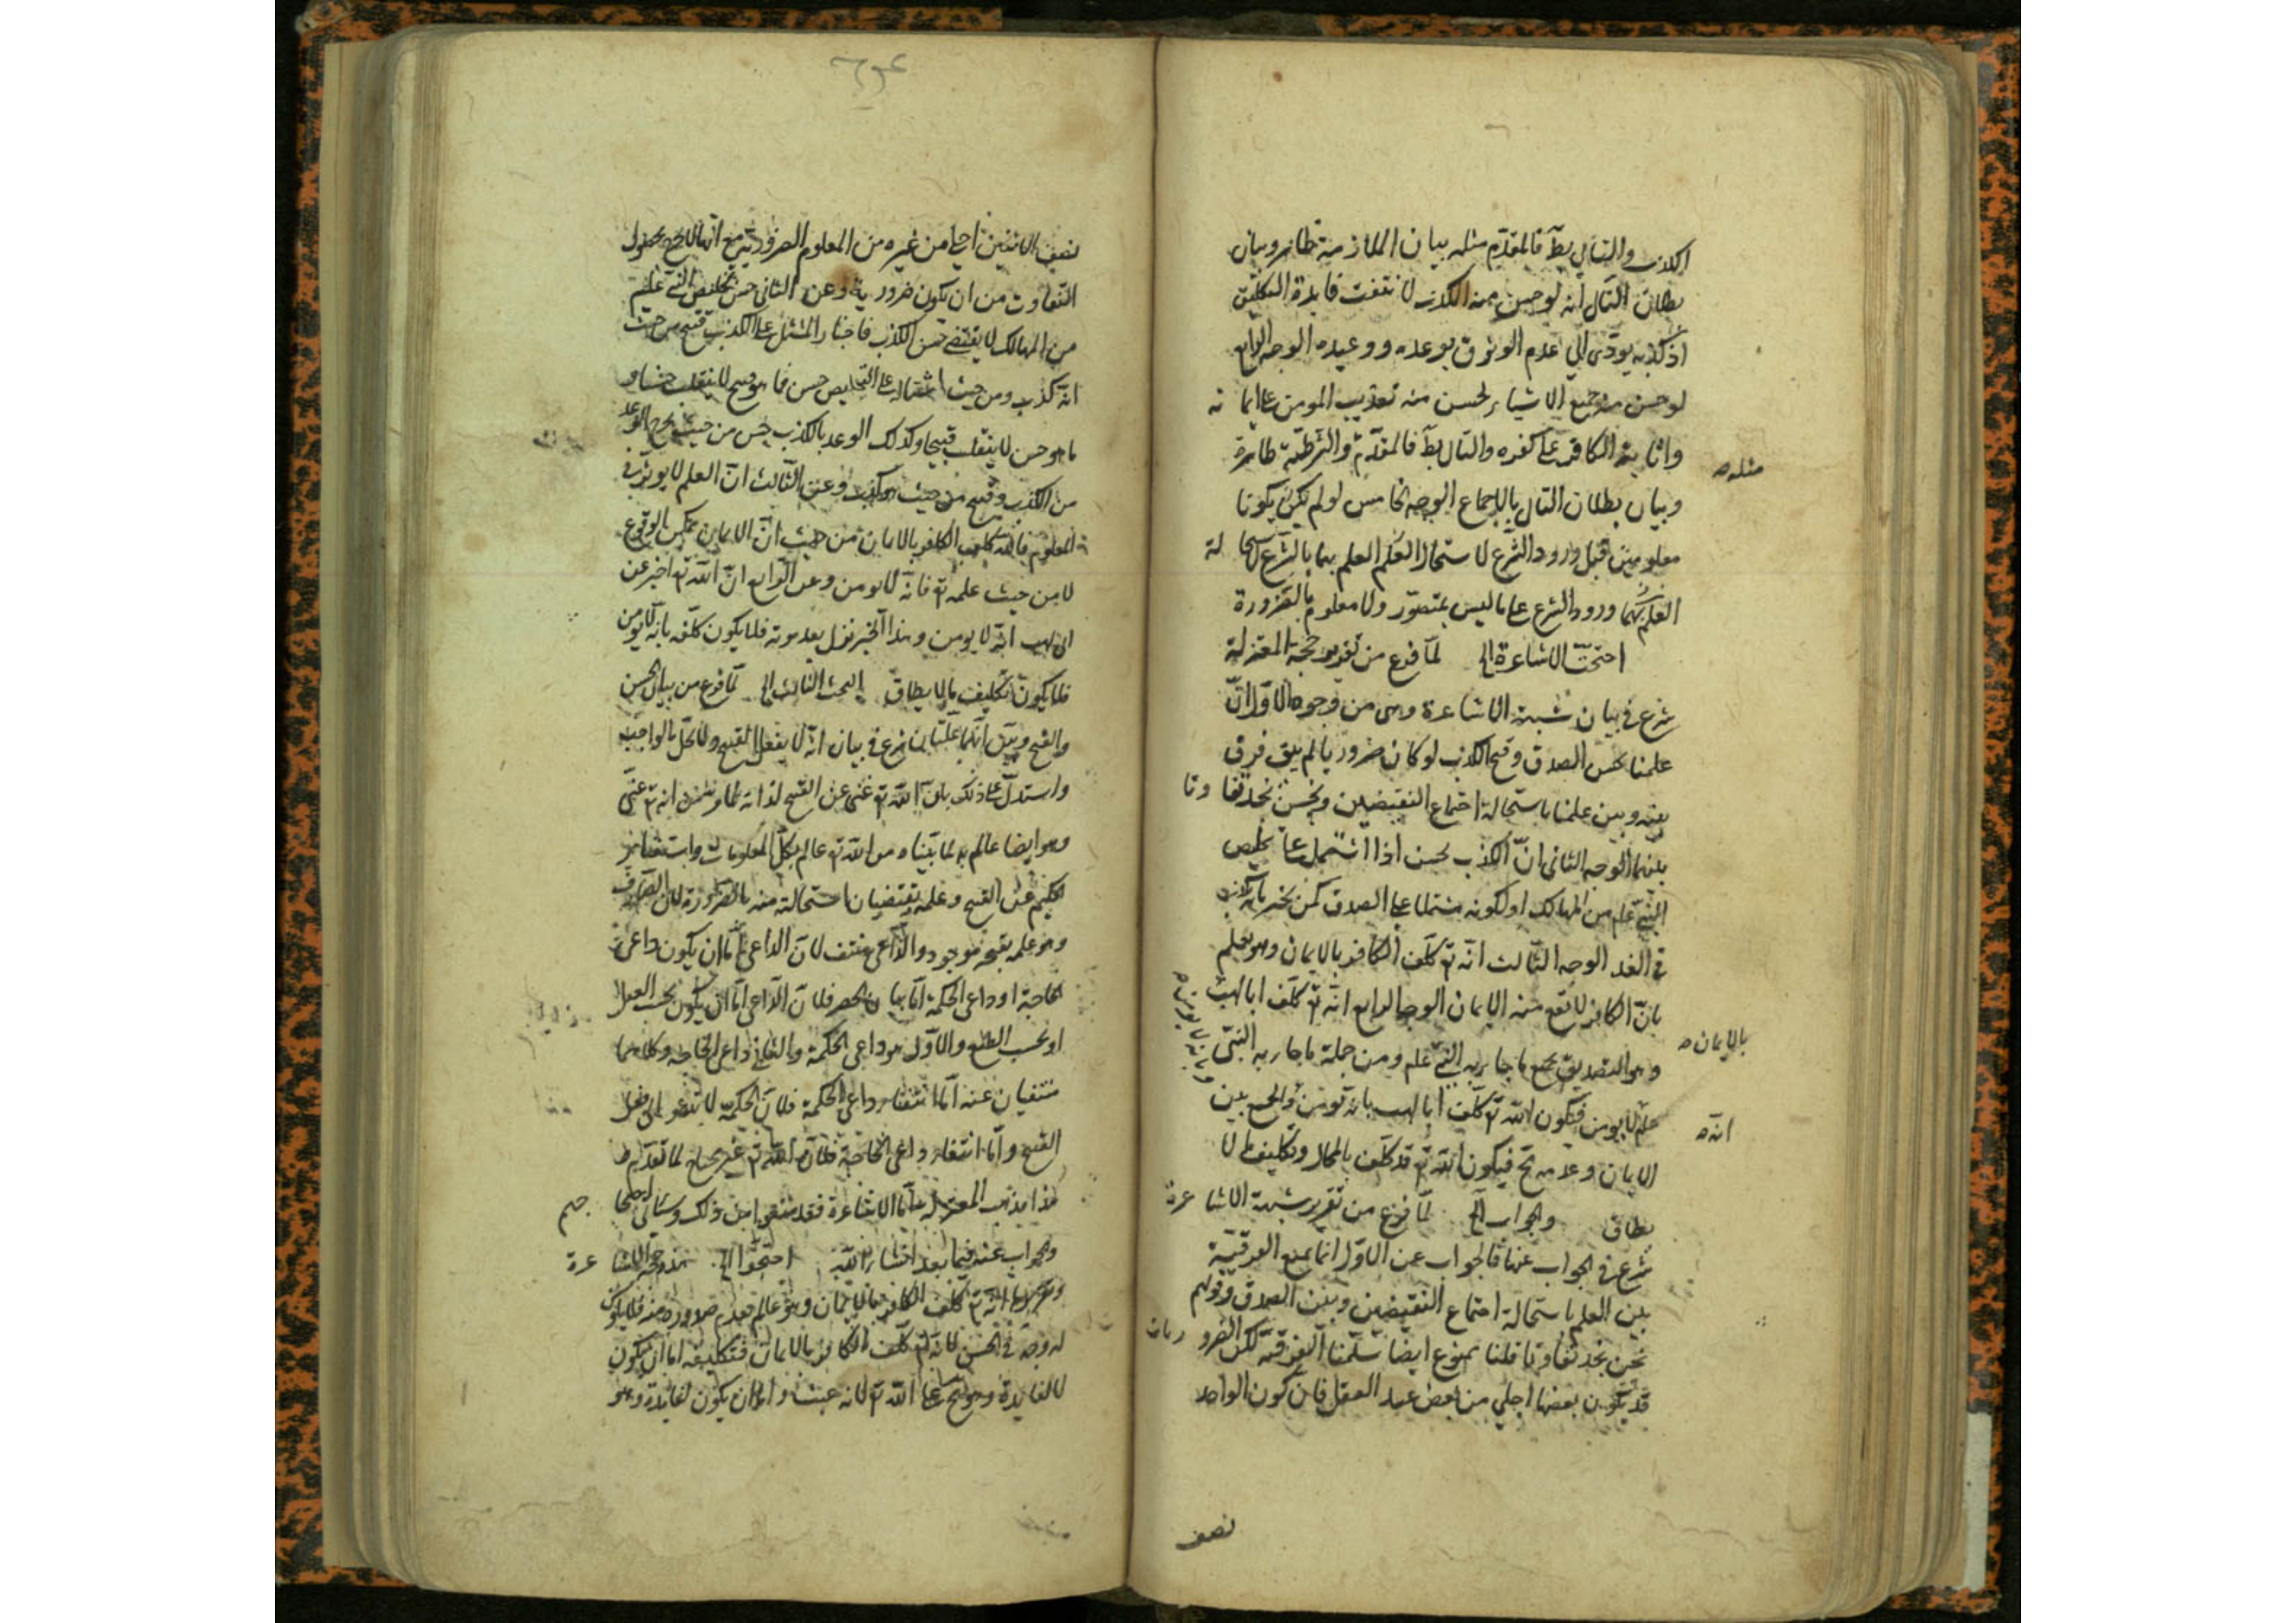 الكذب والتالى بط فالمقدم مثله بيان الملازمة ظاهر وبيان
بطلان التالى انه لو حسن منه الكذب لانتفت فايدة التكليف
اذ كذبه يودى الى عدم الوثوق بوعده ووعيده الوجه الرابع
لو حسن منه جميع الاشياء لحسن منه تعذيب المومن على ايمانه
واثابة الكافر على كفره والتالى بط فالمقدم والشرطية ظاهرة
مثله
وبيان بطلان التالى بالاجماع الوجه الخامس لو لم يكن يكونا
معلومين قبل ورود الشرع لاستحال العلم العلم بهما بالشرع لاستحالة
العلم بهما ورود الشرع على ما ليس بمتصور ولا معلوم بالضرورة
احتجت الاشاعرة الخ لما فرغ من تقرير حجة المعتزلة
شرع فى بيان شبهة الاشاعرة وهى من وجوه الاول ان
علمنا بحسن الصدق وقبح الكذب لو كان ضروريا لم يبق فرق
بينه وبين علمنا باستحالة اجتماع النقيضين ونحن نجد تفاوتا
بينهما الوجه الثانى ان الكذب يحسن اذا اشتمل على تخليص
النبى علم من المهالك او لكونه مشتملا على الصدق كمن يخبر بانه يكذب
فى الغد الوجه الثالث انه تع كلف الكافر بالايمان وهو يعلم
بان الكافر لا يقع منه الايمان الوجه الرابع انه تع كلف ابا لهب
بالايمان
وهو التصديق بجميع ما جاء به النبى علم ومن جملة ما جاء به النبى
علم لا يومن فيكون الله تع كلف ابا لهب بانه يومن والجمع بين
انه
الايمان وعدمه مح فيكون الله تع قد كلف بالمحال وتكليف ما لا
يطاق والجواب الخ لما فرغ من تقرير شبهة الاشاعرة
شرع فى الجواب عنها فالجواب عن الاول انا نمنع الفرقية
بين العلم باستحالة اجتماع النقيضين وبين الصدق وقولهم
نحن نجد تفاوتا قلنا ممنوع ايضا سلمنا التفرقة لكن الضروريات
قد يكون بعضها اجلى من بعض عند العقل فان كون الواحد
نصف
نصف الاثنين اجلى من غيره من المعلوم الضرورية مع انه لا يخرج بحصول
التفاوت من ان يكون ضرورية وعن الثانى حسن تخليص النبى علم
من المهالك لا يقتضى حسن الكذب فاخبار المشتمل على الكذب قبيح من حيث
انه كذب ومن حيث اشتماله على التخليص حسن فما هو قبيح لا ينقلب حسنا و
ما هو حسن لا ينقلب قبيحا وكذلك الوعد بالكذب حسن من حيث
من الكذب وقبيح من حيث هو كذب وعن الثالث ان العلم لا يوثر فى
المعلوم فانه كلف الكافر بالايمان من حيث ان الايمان ممكن الوقوع
لا من حيث علمه تع فانه لا يومن وعن الرابع ان الله تع اخبر عن
ابى لهب انه لا يومن وهذا الخبر نزل بعد موته فلا يكون كلفه بانه لا يومن
فلا يكون تكليف ما لا يطاق البحث الثالث الخ لما فرغ من بيان الحسن
والقبح وبين انهما عقليان شرع فى بيان انه لا يفعل القبيح ولا يخل بالواجب
واستدل على ذلك بان الله تع غنى عن القبيح لذاته لما انه تع غنى
وهو ايضا عالم به لما بيناه من الله تع عالم بكل المعلومات واستغناء
الحكيم عن القبيح وعلمه يقتضيان استحالته منه بالضرورة لان الصارف
وهو علمه بقبحه موجود والداعى منتف لان الداعى اما ان يكون داعى
الحاجة او داعى الحكمة اما بيان الحصر فلان الداعى اما ان يكون بحسب العقل
او بحسب الطبع والاول هو داعى الحكمة والثانى داعى الحاجة وكلاهما
منتفيان عنه اما انتفاء داعى الحكمة فلان الحكمة لا تدعو الى فعل
القبيح واما انتفاء داعى الحاجة فلان الله تع غير محتاج لما تقدم
هذا مذهب المعتزلة اما الاشاعرة فقد منعوا من ذلك وسياتى
والجواب عنه فيما بعد انشاء الله احتجوا الخ هذه حجة الاشاعرة
وتقريرها انه تع كلف الكافر بالايمان وهو عالم بعدم صدوره منه فلا يكون
له وجه فى الحسن لانه تع كلف الكافر بالايمان فتكليفه اما ان يكون
لا لفايدة وهو قبيح على الله تع لانه عبث واما ان يكون لفايدة وهو